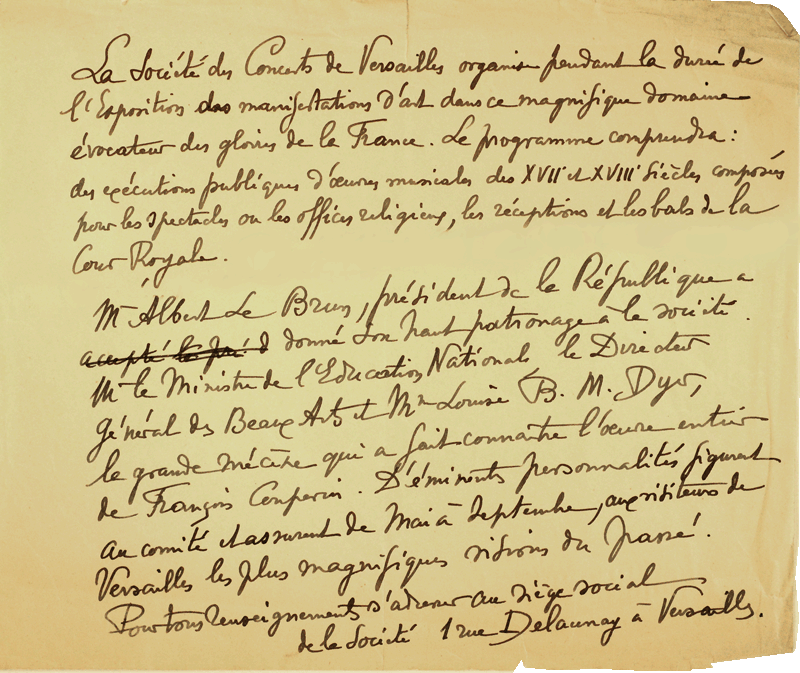 La Société des Concerts de Versailles organise pendant la durée de
l'Exposition des manifestations d'art dans ce magnifique domaine
évocateur des gloires de la France. Le programme comprendra :
des exécutions publiques d'œuvres musicales des XVII et XVIII siècles composées
pour les spectacles ou les offices religieux, les réceptions et les bals de la
Cour Royale.
Mr Albert Le Brun, président de la République a
accepté la pré d donné son haut patronage a la société.
Mr le Ministre de l'Education Nationale le Directeur
Général des Beaux Arts et Mme Louise B. M. Dyer,
la grande mécène qui a fait connaître l'œuvre entier
de François Couperin. D'éminents personnalités figurent
au comité et assurent de Mai à Septembre, aux visiteurs de
Versailles les plus magnifiques visions du passé.
Pour tous renseignements s'adresser au siège social
de la Société 1 rue Delaunay à Versailles.